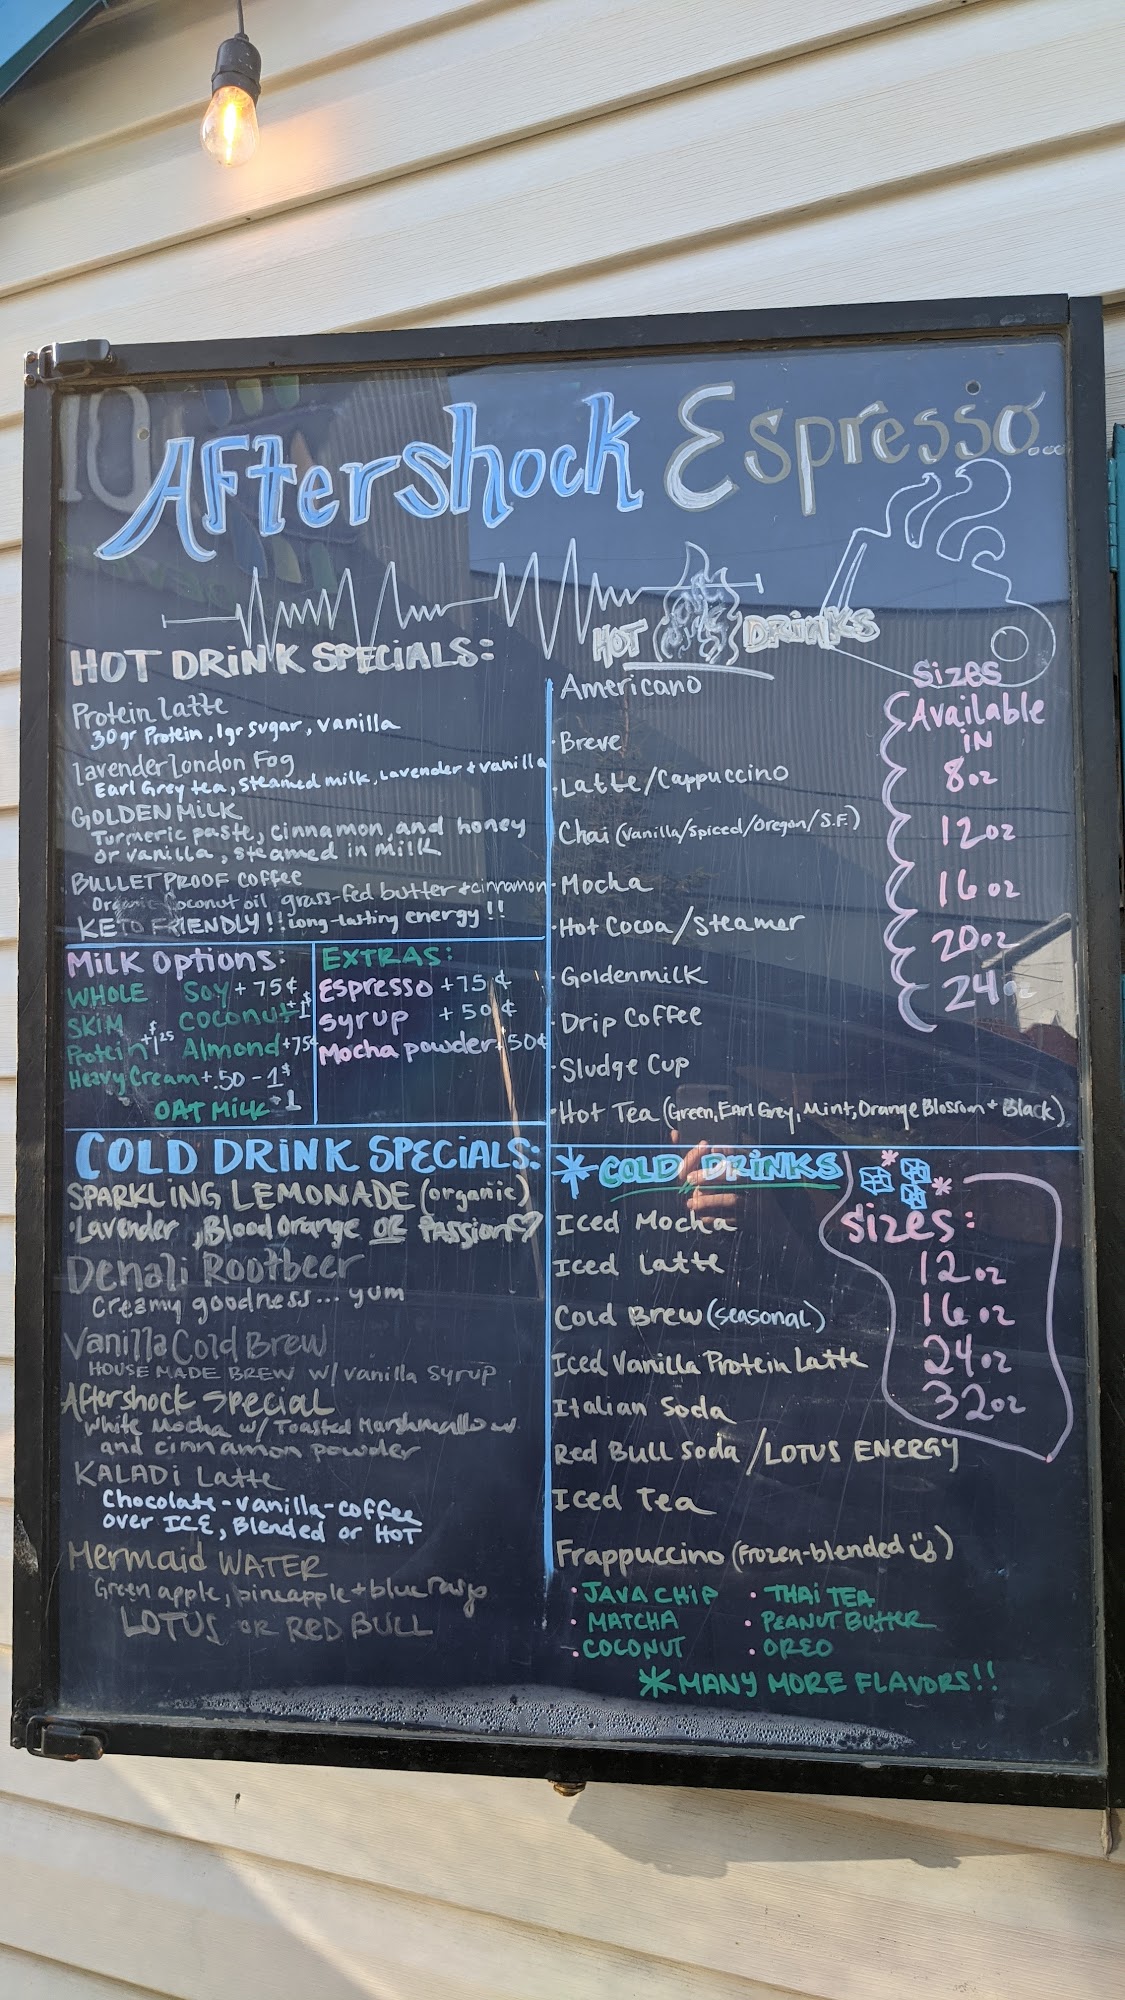 Aftershock Espresso...
HOT DRINK SPECIALS:
Protein Latte
30gr Protein, 1gr sugar, vanilla
Lavender London Fog
Earl Grey tea, steamed milk, Lavender + vanilla
GOLDEN MILK
Turmeric paste, cinnamon, and honey
or vanilla, steamed in milk
BULLETPROOF COFFEE
Organic Coconut oil grass-fed butter + cinnamon
KETO FRIENDLY!! Long-lasting energy!!
Milk Options:
WHOLE Soy +75¢
SKIM Coconut +1$
Protein +$1.25 Almond +75¢
Heavy Cream +.50-1$
OAT Milk +1
EXTRAS:
Espresso +75¢
Syrup +50¢
Mocha powder +50¢
COLD DRINK SPECIALS:
SPARKLING LEMONADE (organic)
•Lavender, Blood Orange OR Passion♡
Denali Rootbeer
Creamy goodness... yum
Vanilla Cold Brew
HOUSE MADE BREW w/ vanilla syrup
Aftershock Special
White Mocha w/ Toasted Marshmallow
and cinnamon powder
KALADI Latte
Chocolate-vanilla-coffee
over ICE, Blended or HOT
Mermaid WATER
Green apple, pineapple + blue rasp
LOTUS OR RED BULL
HOT DRINKS
•Americano
•Breve
•Latte/Cappuccino
Chai (vanilla/spiced/Oregon/S.F.)
•Mocha
•Hot Cocoa/Steamer
•Goldenmilk
•Drip Coffee
•Sludge Cup
•Hot Tea (Green, Earl Grey, Mint, Orange Blossom + Black)
Sizes
Available
IN
8oz
12oz
16oz
20oz
24oz
*COLD DRINKS
Iced Mocha
Iced Latte
Cold Brew (seasonal)
Iced Vanilla Protein Latte
Italian Soda
Red Bull Soda/LOTUS ENERGY
Iced Tea
Frappuccino (Frozen-blended)
•JAVA CHIP •THAI TEA
•MATCHA •PEANUT BUTTER
•COCONUT •OREO
*MANY MORE FLAVORS!!
Sizes:
12oz
16oz
24oz
32oz